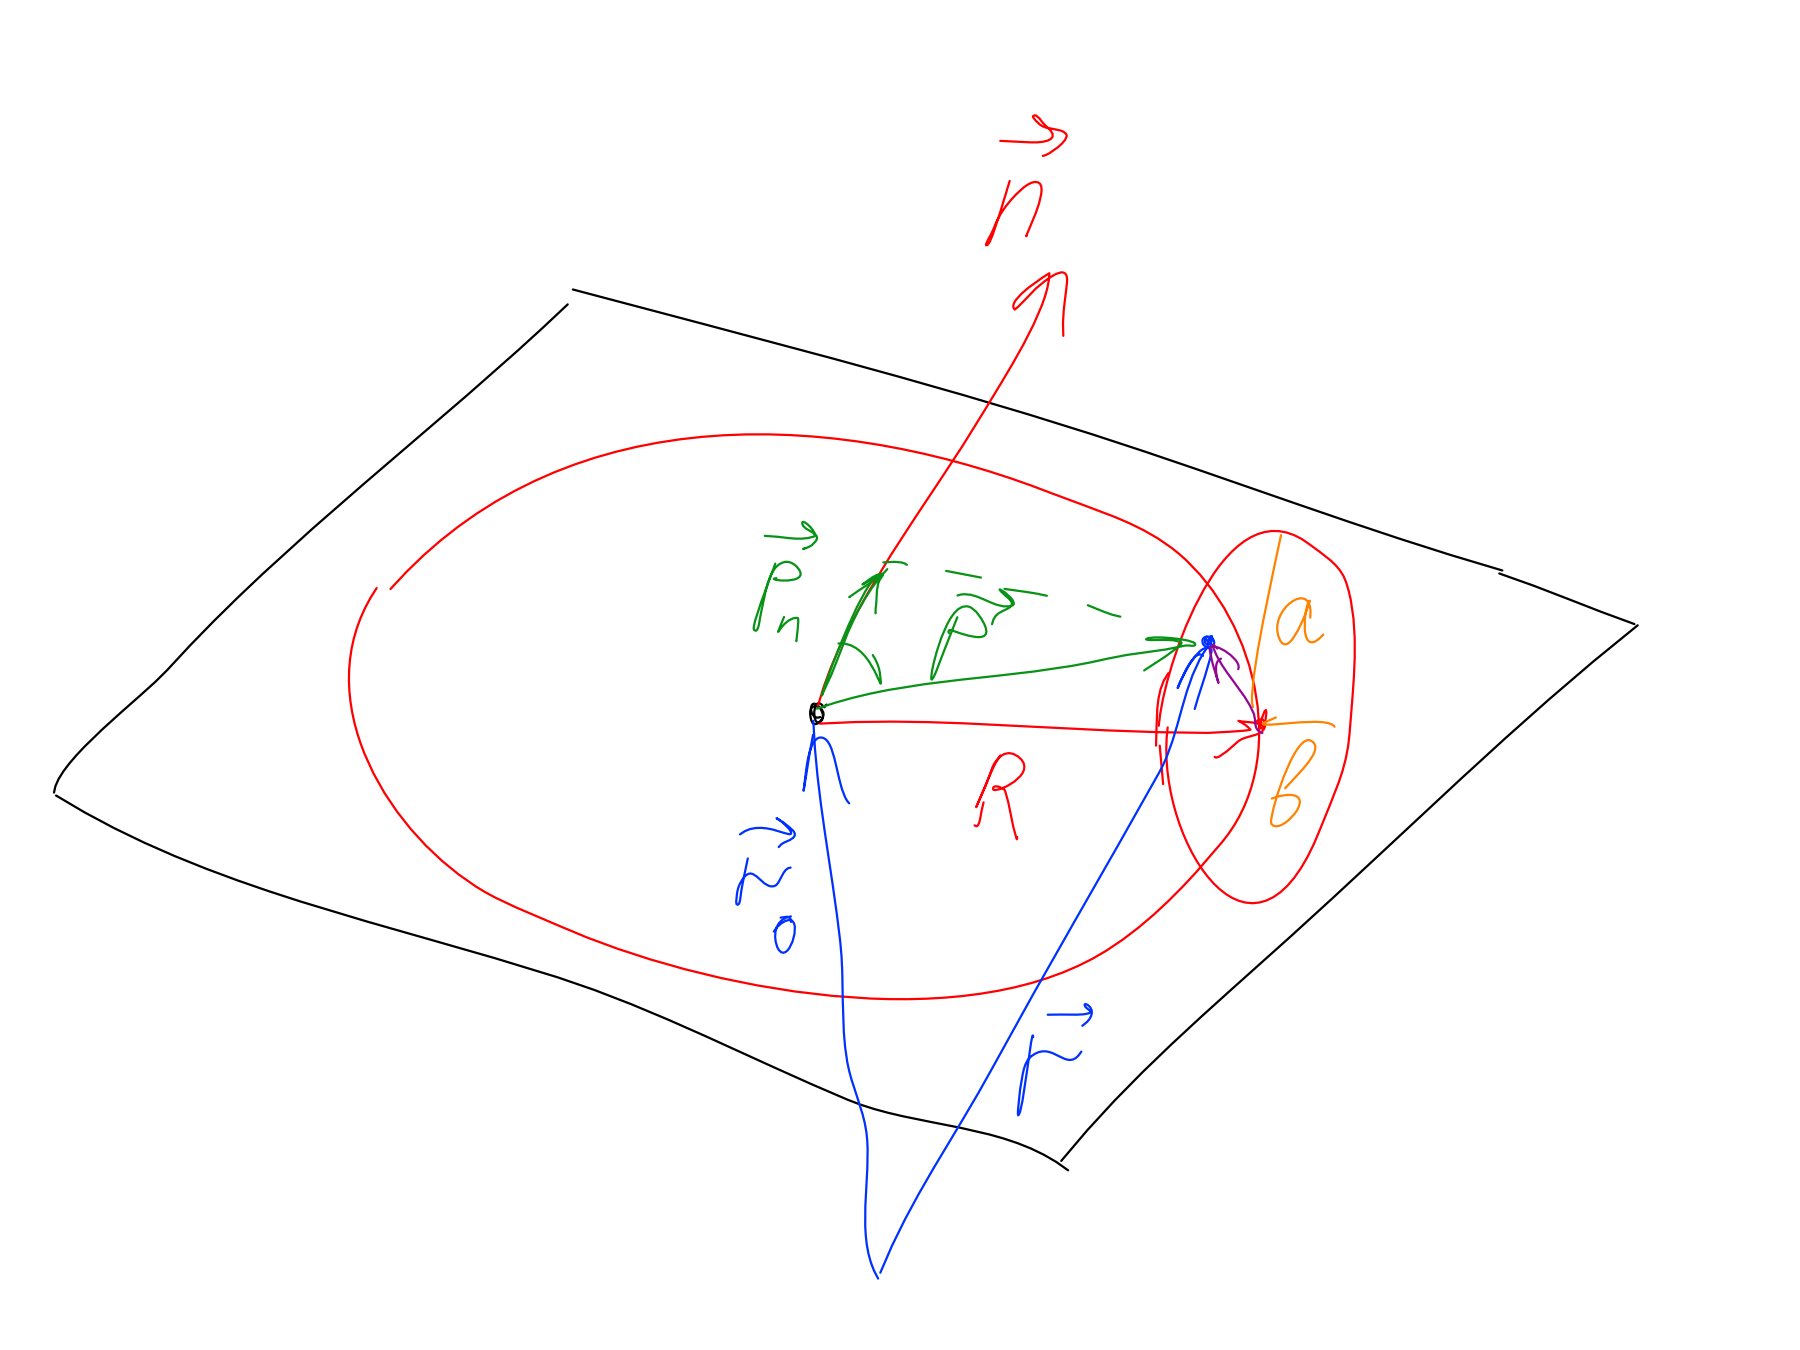 n⃗
P⃗ₙ
P⃗
a
R
b
r⃗₀
r⃗